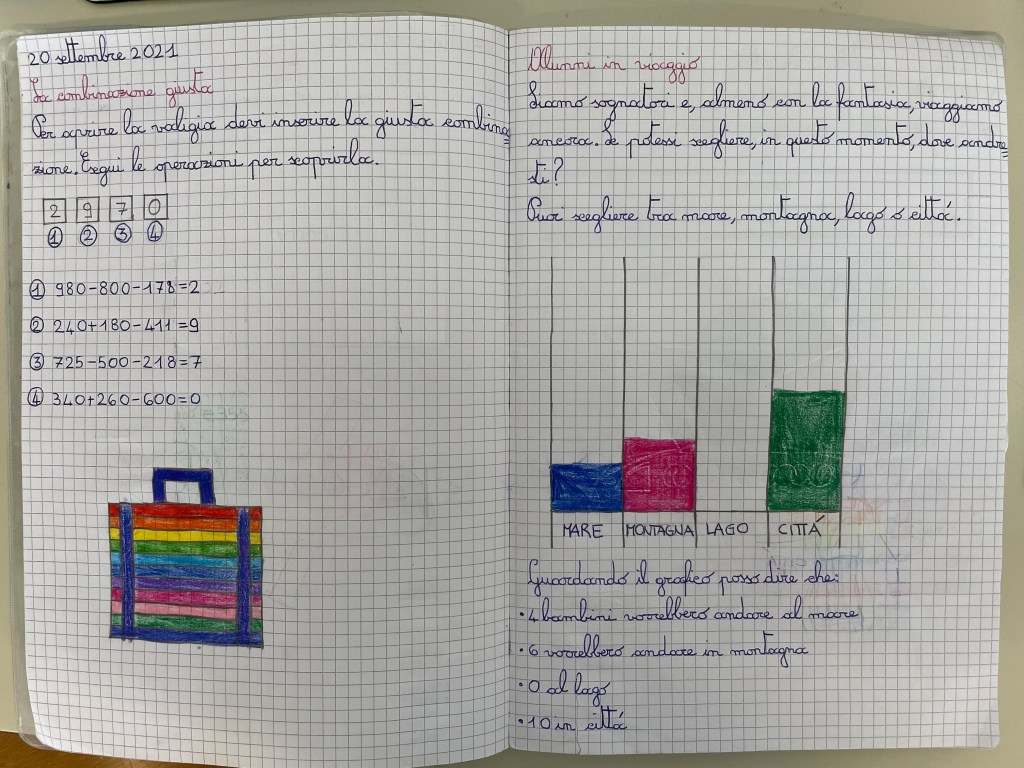 20 settembre 2021
La combinazione giusta
Per aprire la valigia devi inserire la giusta combina=
zione. Esegui le operazioni per scoprirla.
2 9 7 0
1 2 3 4
1 980-800-178=2
2 240+180-411=9
3 725-500-218=7
4 340+260-600=0
Alunni in viaggio
Siamo sognatori e, almeno con la fantasia, viaggiamo
ancora. Se potessi scegliere, in questo momento, dove andre=
sti?
Puoi scegliere tra mare, montagna, lago o cittá.
MARE MONTAGNA LAGO CITTÁ
Guardando il grafico posso dire che:
• 4 bambini vorrebbero andare al mare
• 6 vorrebbero andare in montagna
• 0 al lago
• 10 in cittá